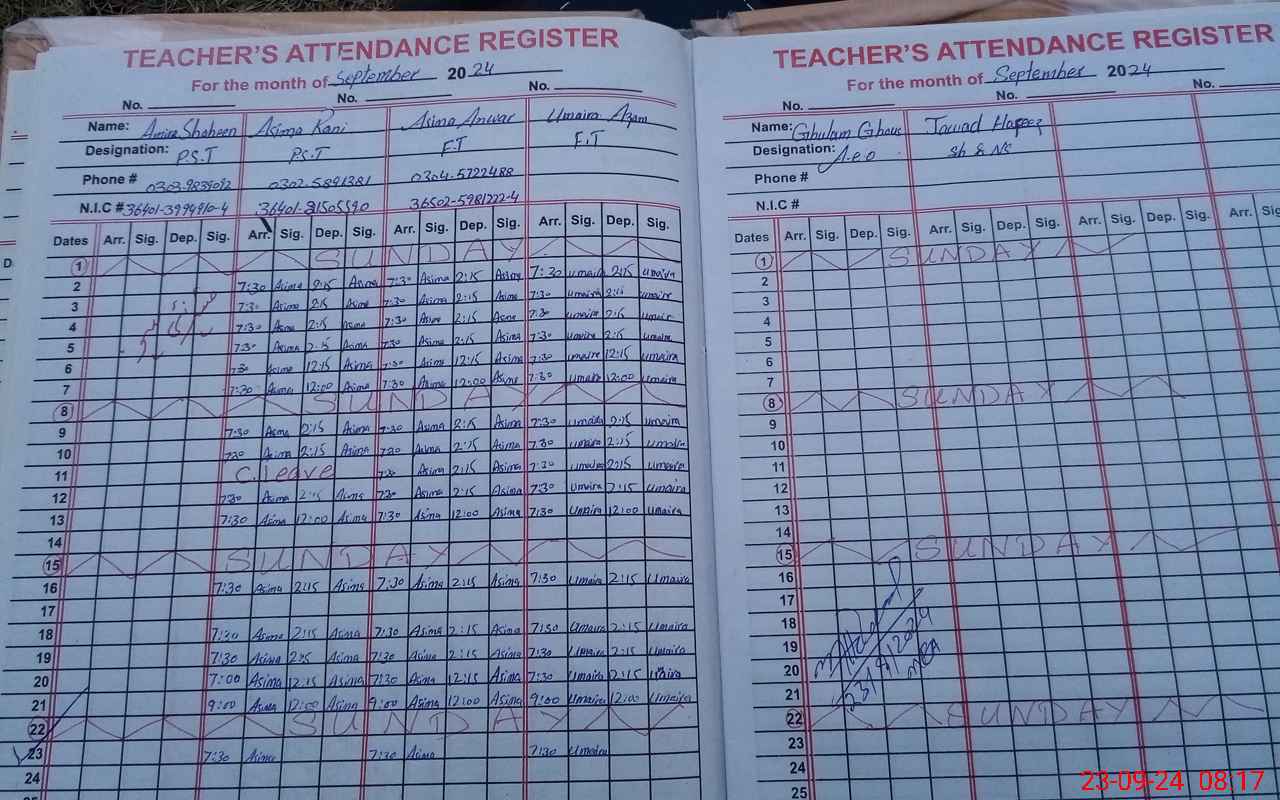 TEACHER'S ATTENDANCE REGISTER
For the month of September 2024
No. No. No.
Name: Amira Shaheen Asima Rani Asima Anwar Umaira Azam
Designation: P.S.T P.S.T E.T E.T
Phone # 0303-9839092 0302-5891381 0304-5722488
N.I.C # 36401-3994910-4 36401- 36502-5981222-4
Dates Arr. Sig. Dep. Sig. Arr. Sig. Dep. Sig. Arr. Sig. Dep. Sig. Arr. Sig. Dep. Sig.
1 SUNDAY
2 7:30 Asima 2:15 Asima 7:30 Asima 2:15 Asima 7:30 umaira 2:15 umaira
3 7:30 Asima 2:15 Asima 7:30 Asima 2:15 Asima 7:30 umaira 2:15 umaira
4 7:30 Asima 2:15 Asima 7:30 Asima 2:15 Asima 7:30 umaira 2:15 umaira
5 7:30 Asima 2:15 Asima 7:30 Asima 2:15 Asima 7:30 umaira 2:15 umaira
6 7:30 Asima 12:15 Asima 7:30 Asima 12:15 Asima 7:30 umaira 12:15 umaira
7 7:30 Asima 12:00 Asima 7:30 Asima 12:00 Asima 7:30 umaira 12:00 umaira
8 SUNDAY
9 7:30 Asima 2:15 Asima 7:30 Asima 2:15 Asima 7:30 umaira 2:15 umaira
10 7:30 Asima 2:15 Asima 7:30 Asima 2:15 Asima 7:30 umaira 2:15 umaira
11 C.leave 7:30 Asima 2:15 Asima 7:30 umaira 2:15 umaira
12 7:30 Asima 2:15 Asima 7:30 Asima 2:15 Asima 7:30 umaira 2:15 umaira
13 7:30 Asima 12:00 Asima 7:30 Asima 12:00 Asima 7:30 Umaira 12:00 umaira
14
15 SUNDAY
16 7:30 Asima 2:15 Asima 7:30 Asima 2:15 Asima 7:30 Umaira 2:15 Umaira
17
18 7:30 Asima 2:15 Asima 7:30 Asima 2:15 Asima 7:30 Umaira 2:15 Umaira
19 7:30 Asima 2:15 Asima 7:30 Asima 2:15 Asima 7:30 Umaira 2:15 Umaira
20 7:00 Asima 12:15 Asima 7:30 Asima 12:15 Asima 7:30 Umaira 12:15 Umaira
21 9:00 Asima 12:00 Asima 9:00 Asima 12:00 Asima 9:00 Umaira 12:00 Umaira
22 SUNDAY
23 7:30 Asima 7:30 Asima 7:30 Umaira
24
TEACHER'S ATTENDANCE REGISTER
For the month of September 2024
No. No. No.
Name: Ghulam Ghous Jawad Hafeez
Designation: A.e.o Sh & NS
Phone #
N.I.C #
Dates Arr. Sig. Dep. Sig. Arr. Sig. Dep. Sig. Arr. Sig. Dep. Sig. Arr.
1 SUNDAY
2
3
4
5
6
7
8 SUNDAY
9
10
11
12
13
14
15 SUNDAY
16
17
18
19
20
21
23/9/2024
MEA
22 SUNDAY
23
24
25
23-09-24 08:17